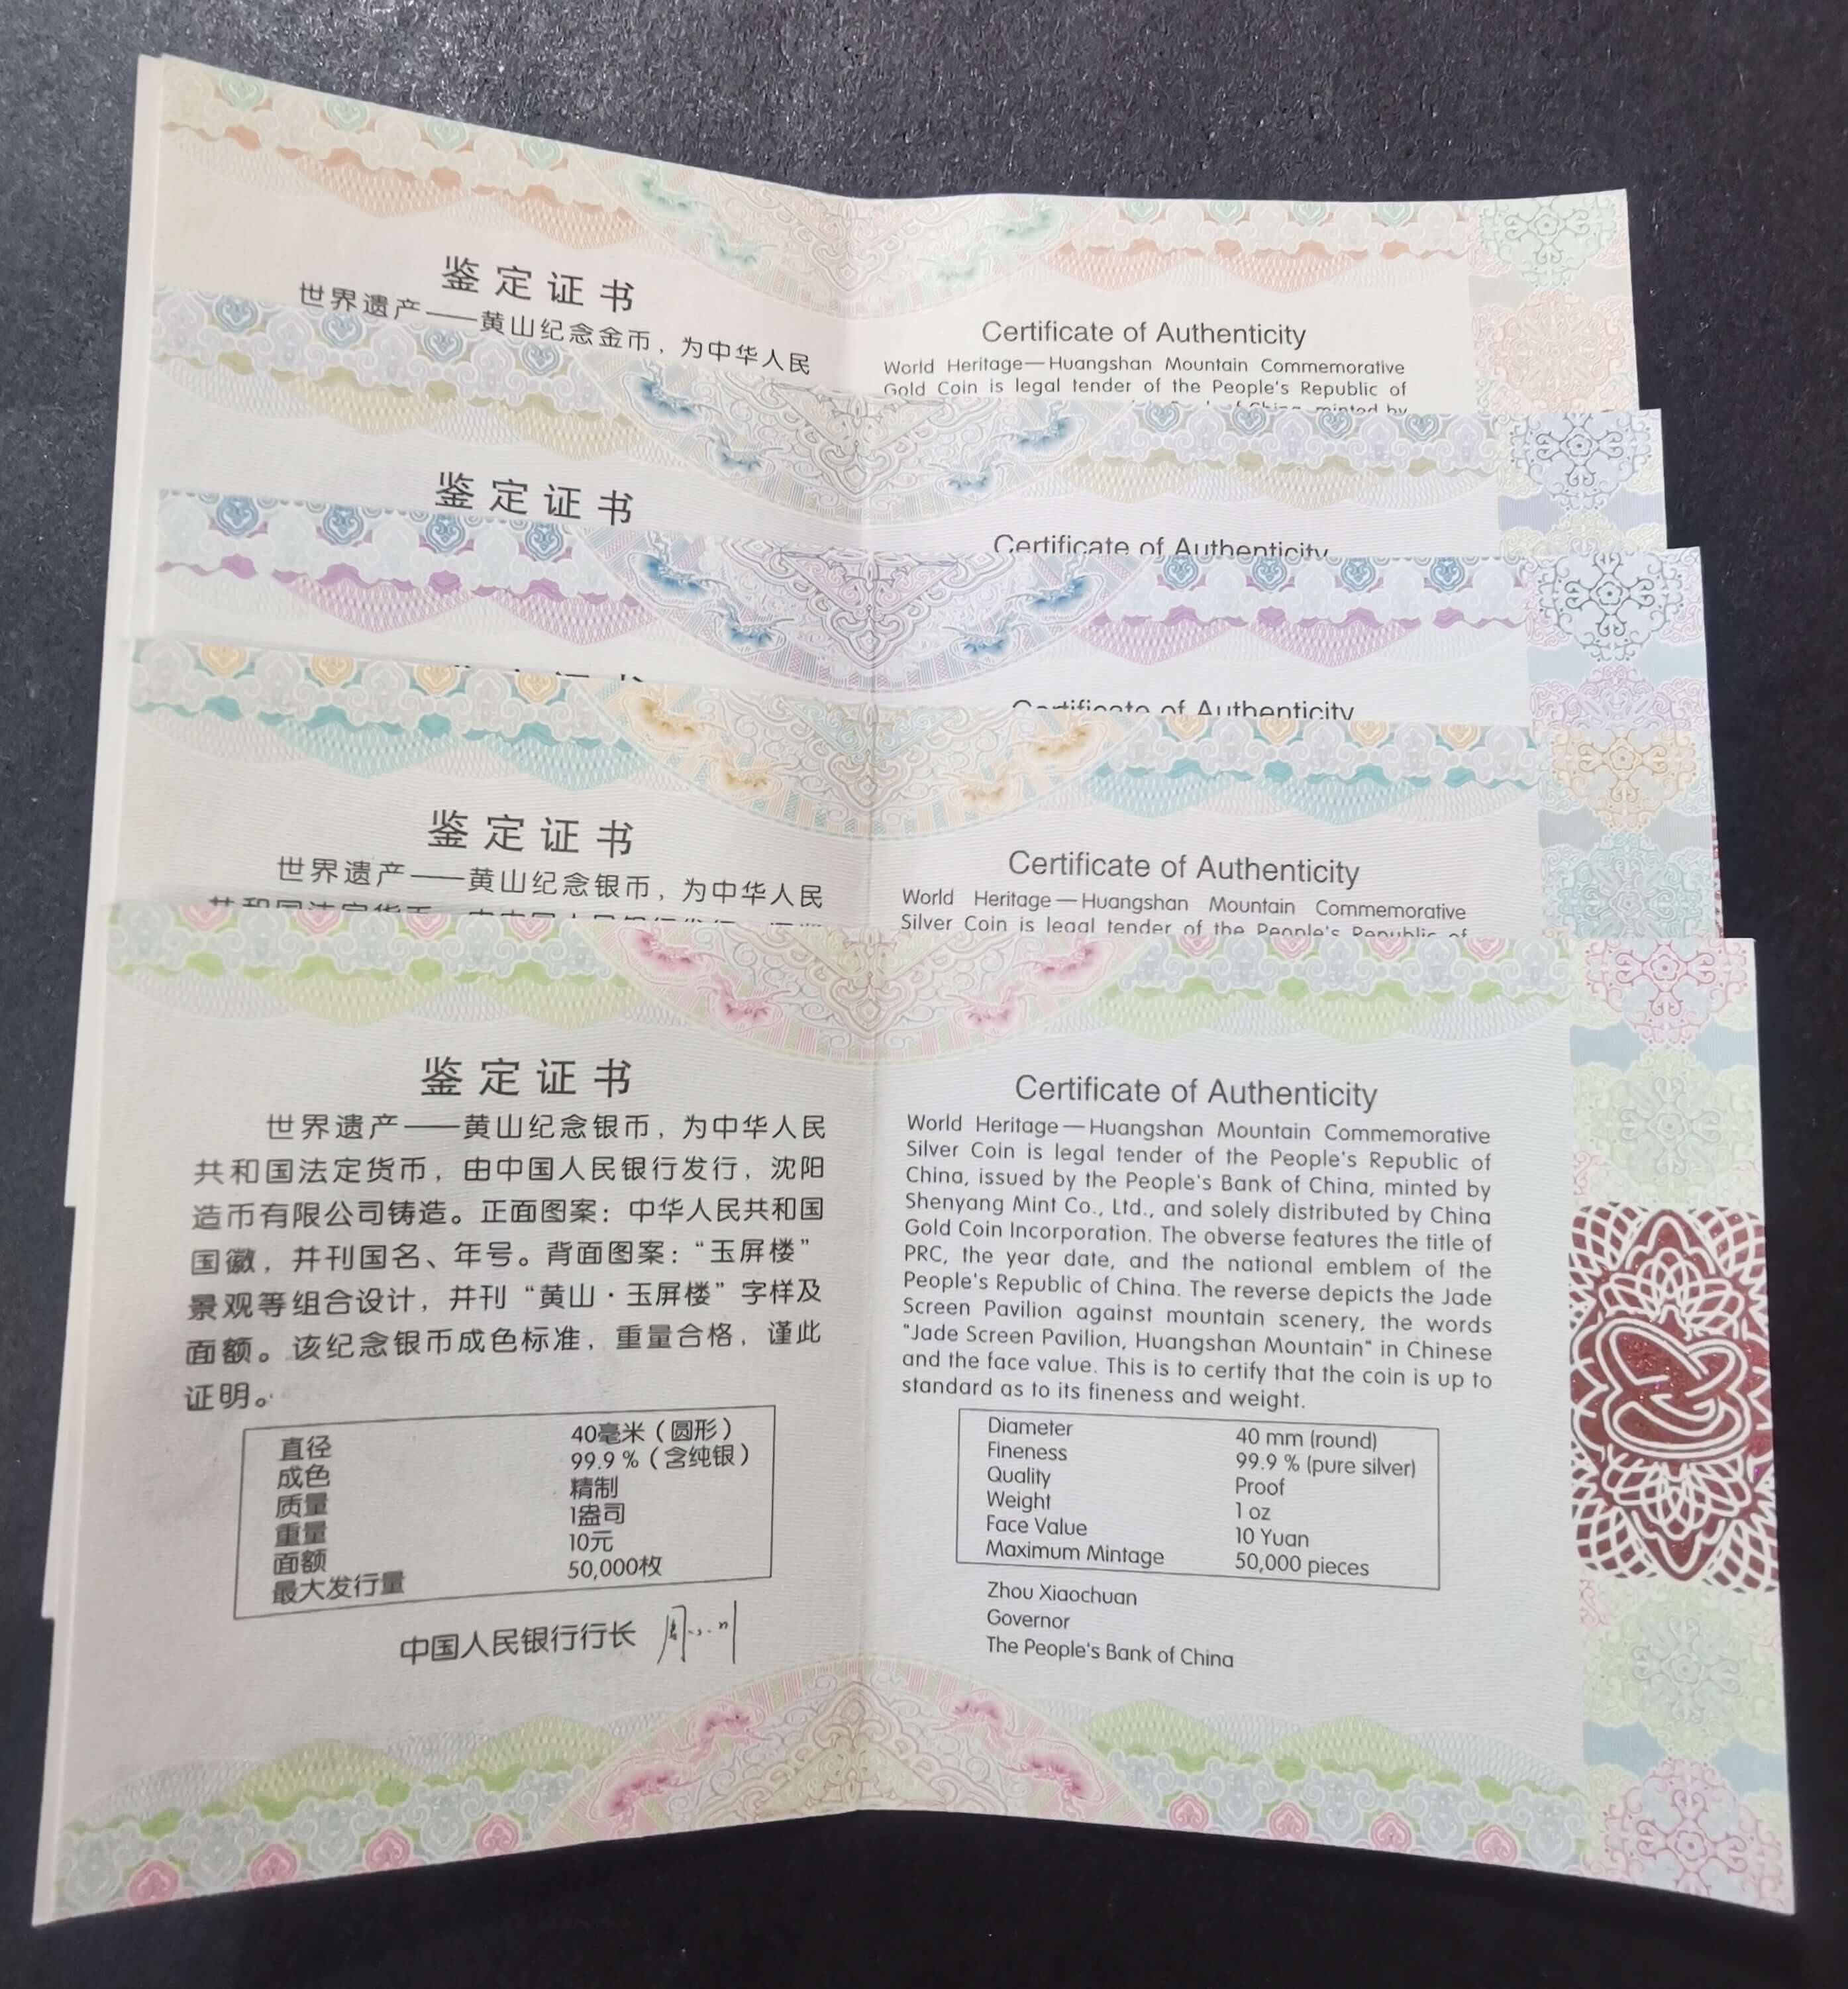 鉴定证书
世界遗产——黄山纪念金币，为中华人民
Certificate of Authenticity
World Heritage—Huangshan Mountain Commemorative
Gold Coin is legal tender of the People's Republic of
minted by
鉴定证书
Certificate of Authenticity
Certificate of Authenticity
鉴定证书
世界遗产——黄山纪念银币，为中华人民
Certificate of Authenticity
World Heritage—Huangshan Mountain Commemorative
Silver Coin is legal tender of the People's Republic of
鉴定证书
世界遗产——黄山纪念银币，为中华人民
共和国法定货币，由中国人民银行发行，沈阳
造币有限公司铸造。正面图案：中华人民共和国
国徽，并刊国名、年号。背面图案：“玉屏楼”
景观等组合设计，并刊“黄山·玉屏楼”字样及
面额。该纪念银币成色标准，重量合格，谨此
证明。
直径 40毫米（圆形）
成色 99.9％（含纯银）
质量 精制
重量 1盎司
面额 10元
最大发行量 50,000枚
中国人民银行行长
Certificate of Authenticity
World Heritage—Huangshan Mountain Commemorative
Silver Coin is legal tender of the People's Republic of
China, issued by the People's Bank of China, minted by
Shenyang Mint Co., Ltd., and solely distributed by China
Gold Coin Incorporation. The obverse features the title of
PRC, the year date, and the national emblem of the
People's Republic of China. The reverse depicts the Jade
Screen Pavilion against mountain scenery, the words
"Jade Screen Pavilion, Huangshan Mountain" in Chinese
and the face value. This is to certify that the coin is up to
standard as to its fineness and weight.
Diameter 40 mm (round)
Fineness 99.9 % (pure silver)
Quality Proof
Weight 1 oz
Face Value 10 Yuan
Maximum Mintage 50,000 pieces
Zhou Xiaochuan
Governor
The People's Bank of China